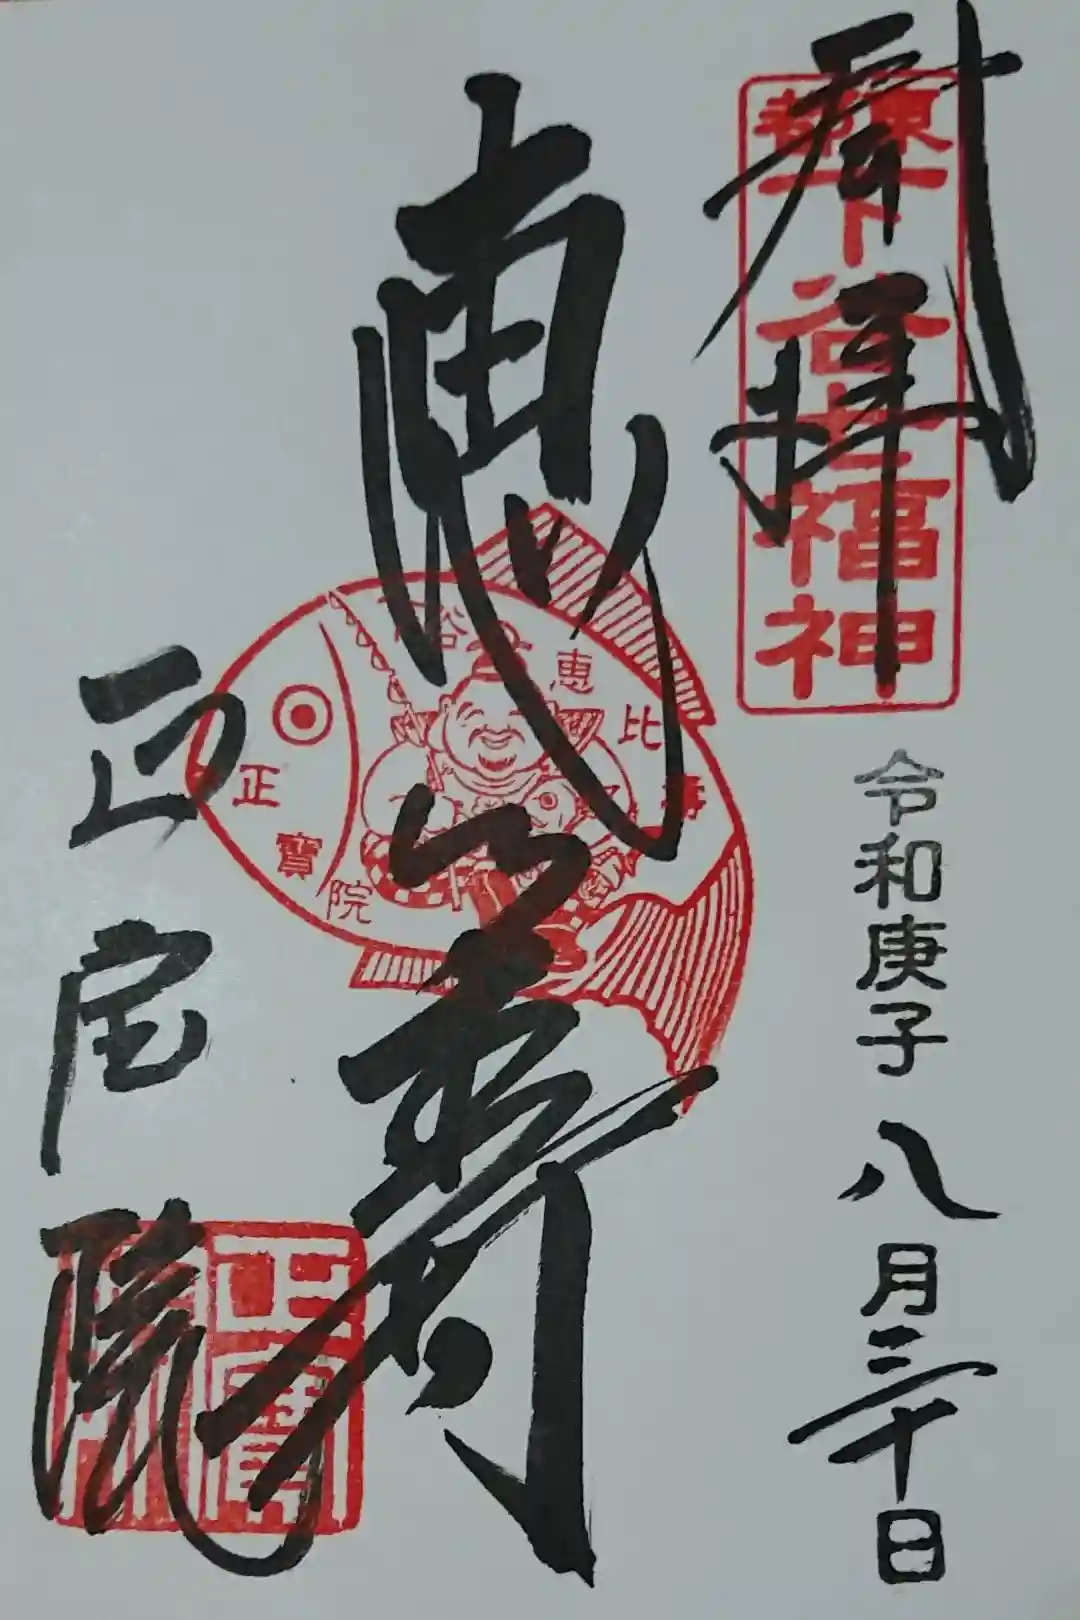 奉拝
東都
下谷七福神
令和庚子八月三十日
恵比寿
飛不動
恵比寿
正寶院
正宝院
正寶院